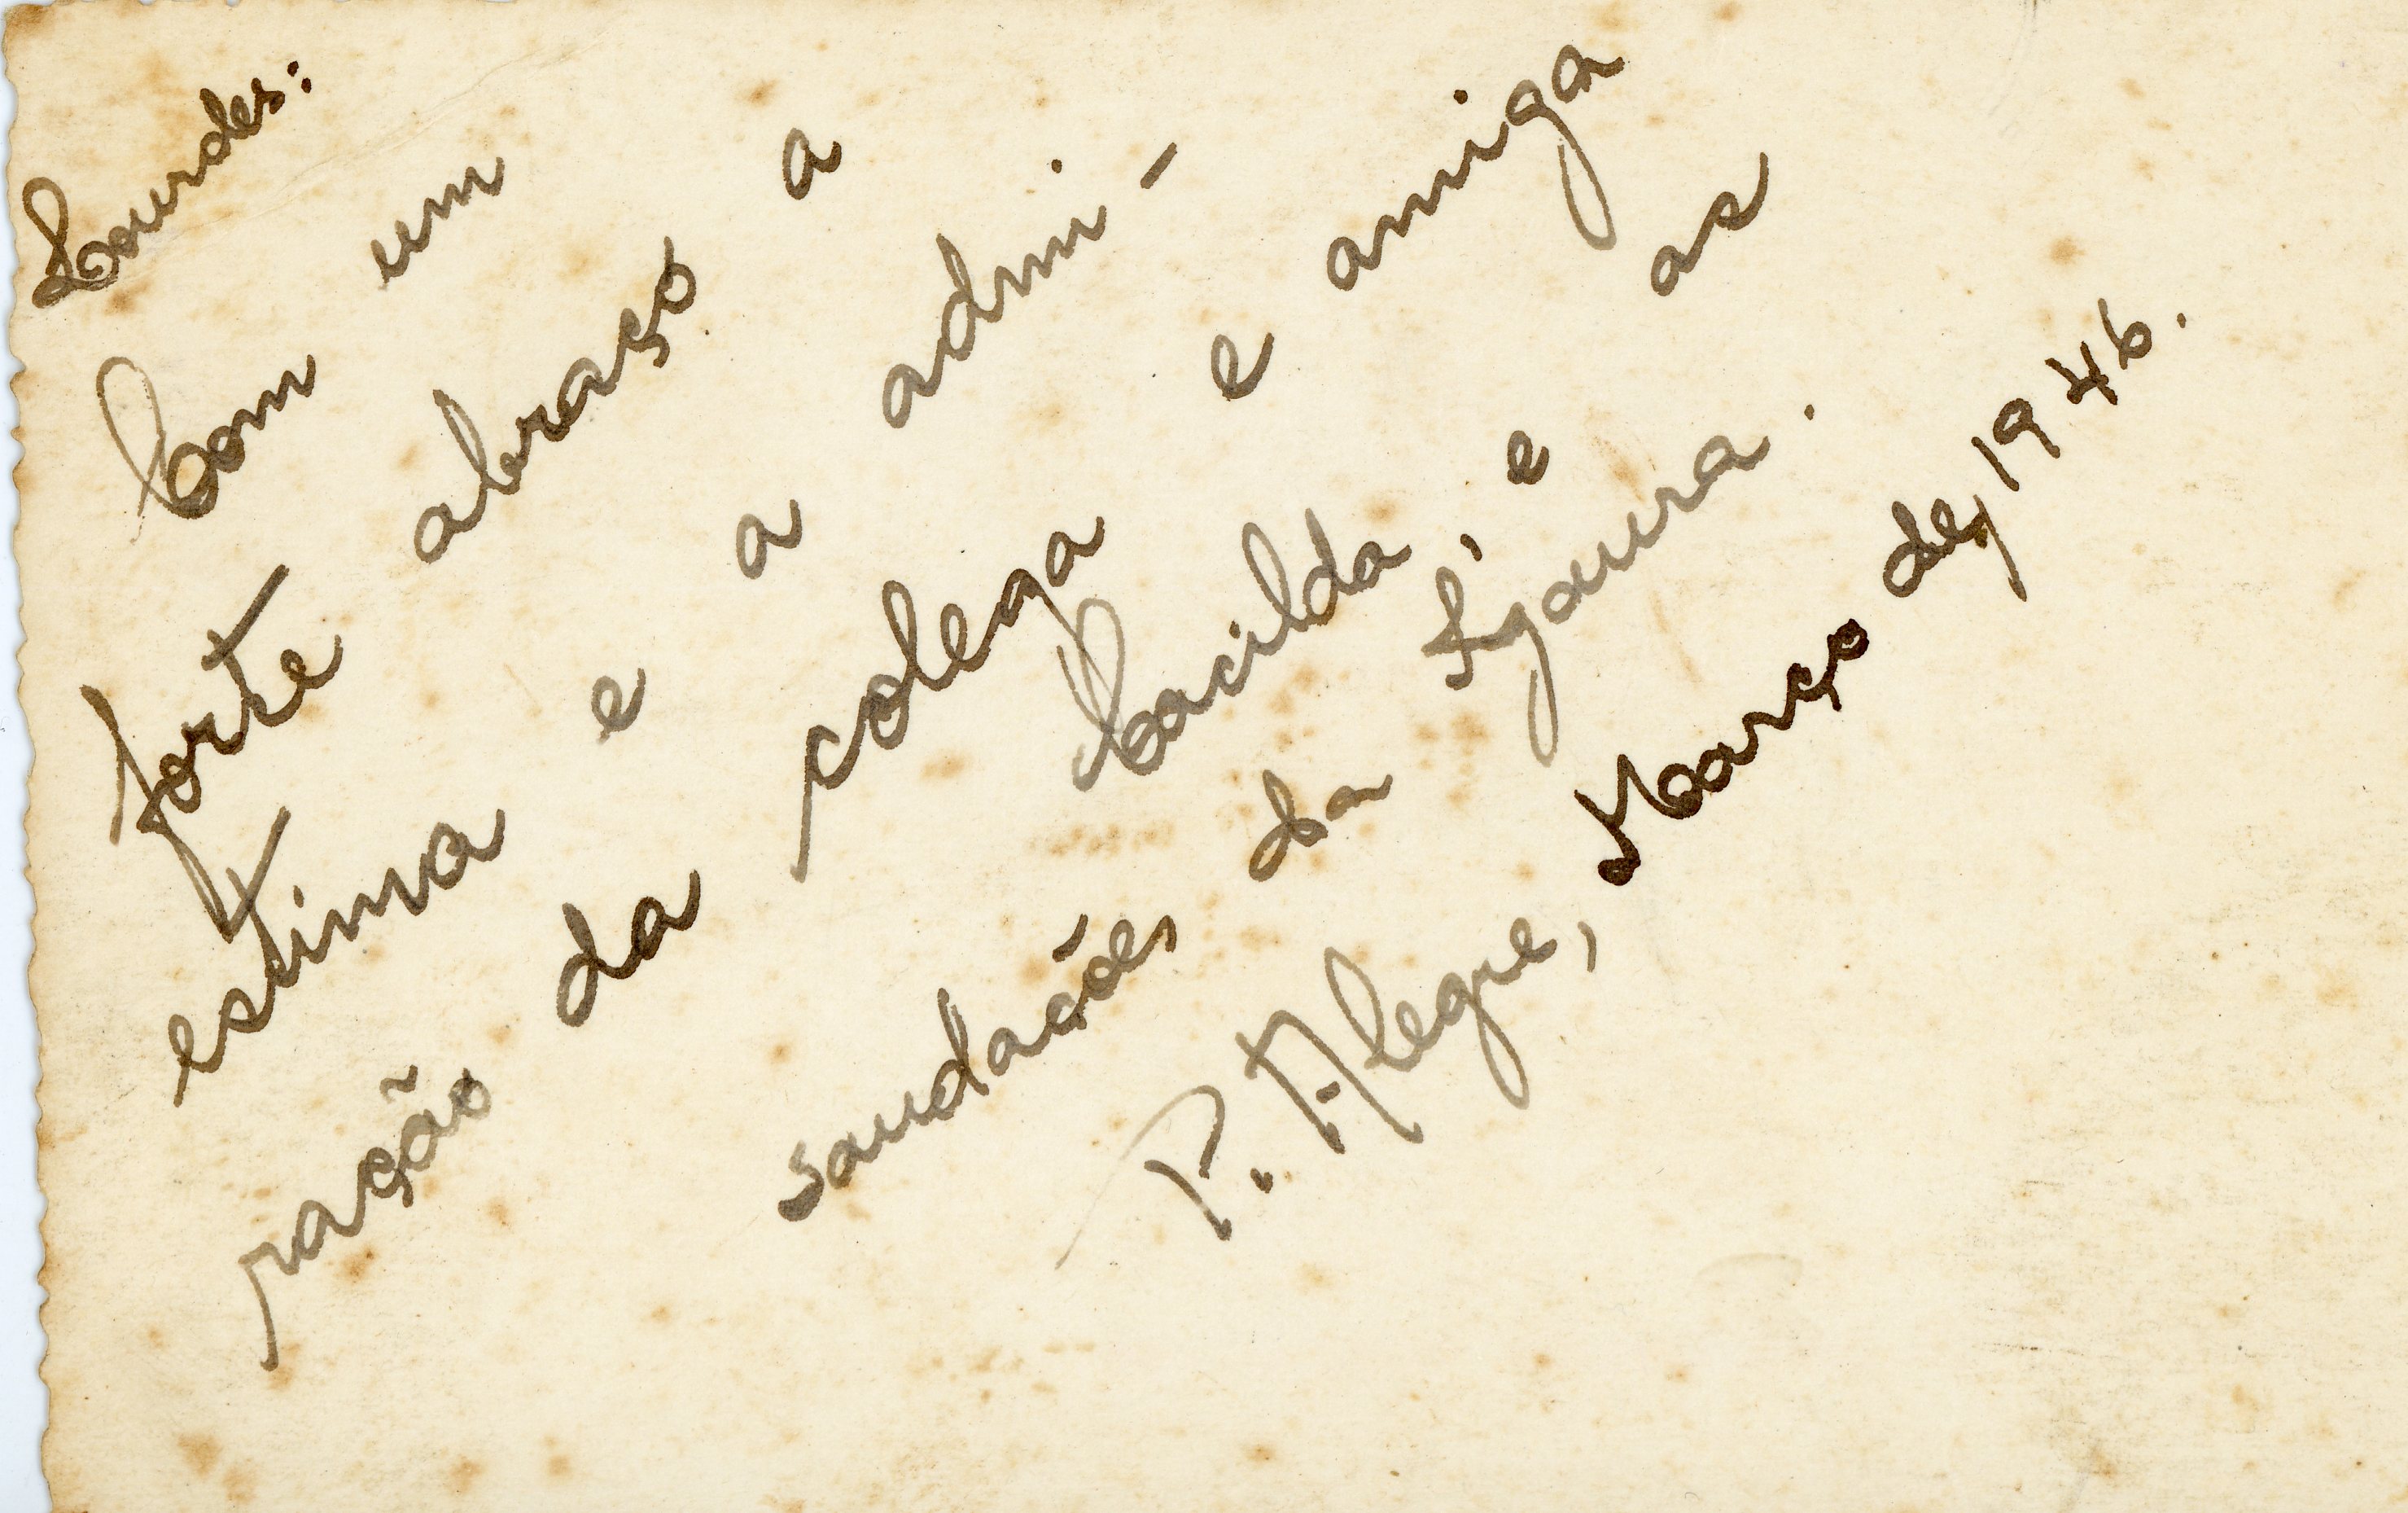 Lourdes:
Com um
forte abraço a
estima e a admi-
ração da colega e amiga
Cacilda, e as
saudações da Iza
P. Alegre, Março de 1946.